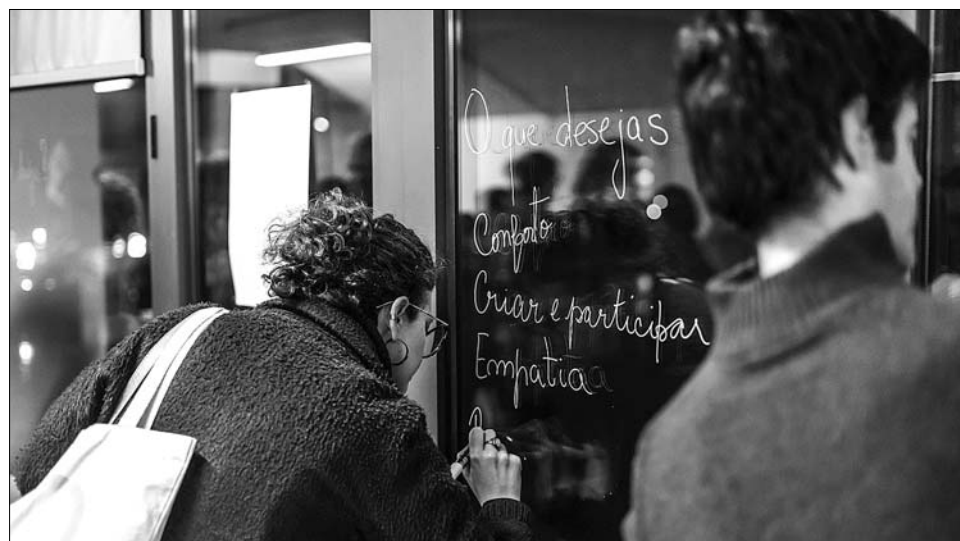 O que desejas
Conforto
Criar e participar
Empatia